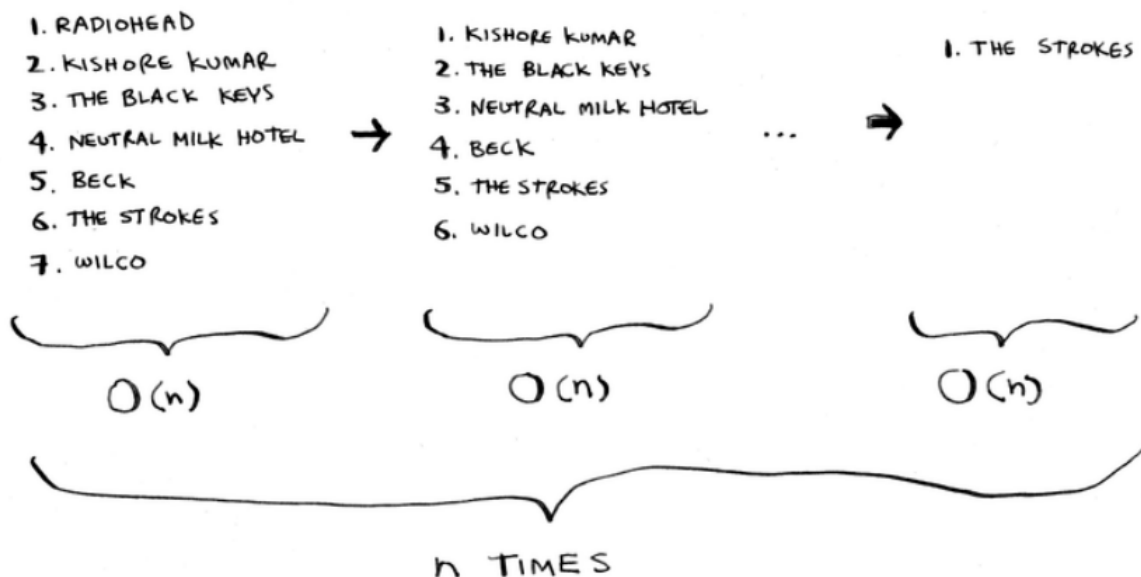 1. RADIOHEAD
2. KISHORE KUMAR
3. THE BLACK KEYS
4. NEUTRAL MILK HOTEL
5. BECK
6. THE STROKES
7. WILCO
→
1. KISHORE KUMAR
2. THE BLACK KEYS
3. NEUTRAL MILK HOTEL
4. BECK
5. THE STROKES
6. WILCO
...
→
1. THE STROKES
O(n)
O(n)
O(n)
n TIMES